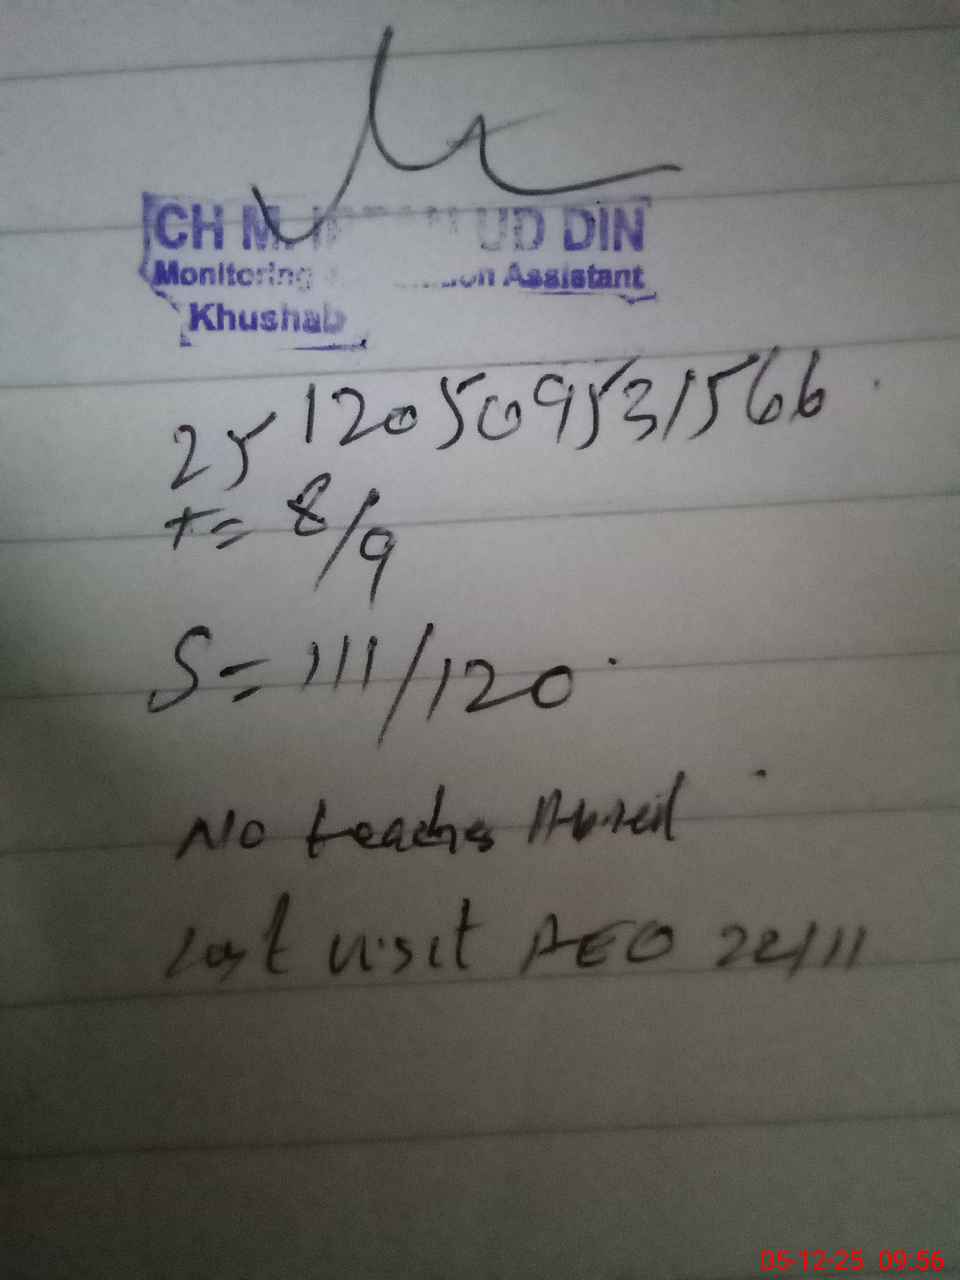 CH M. UD DIN
Monitoring Assistant
Khushab
25120509531566
T= 8/9
S= 111/120
No teacher
Last visit AEO 22/11
05-12-25 09:56